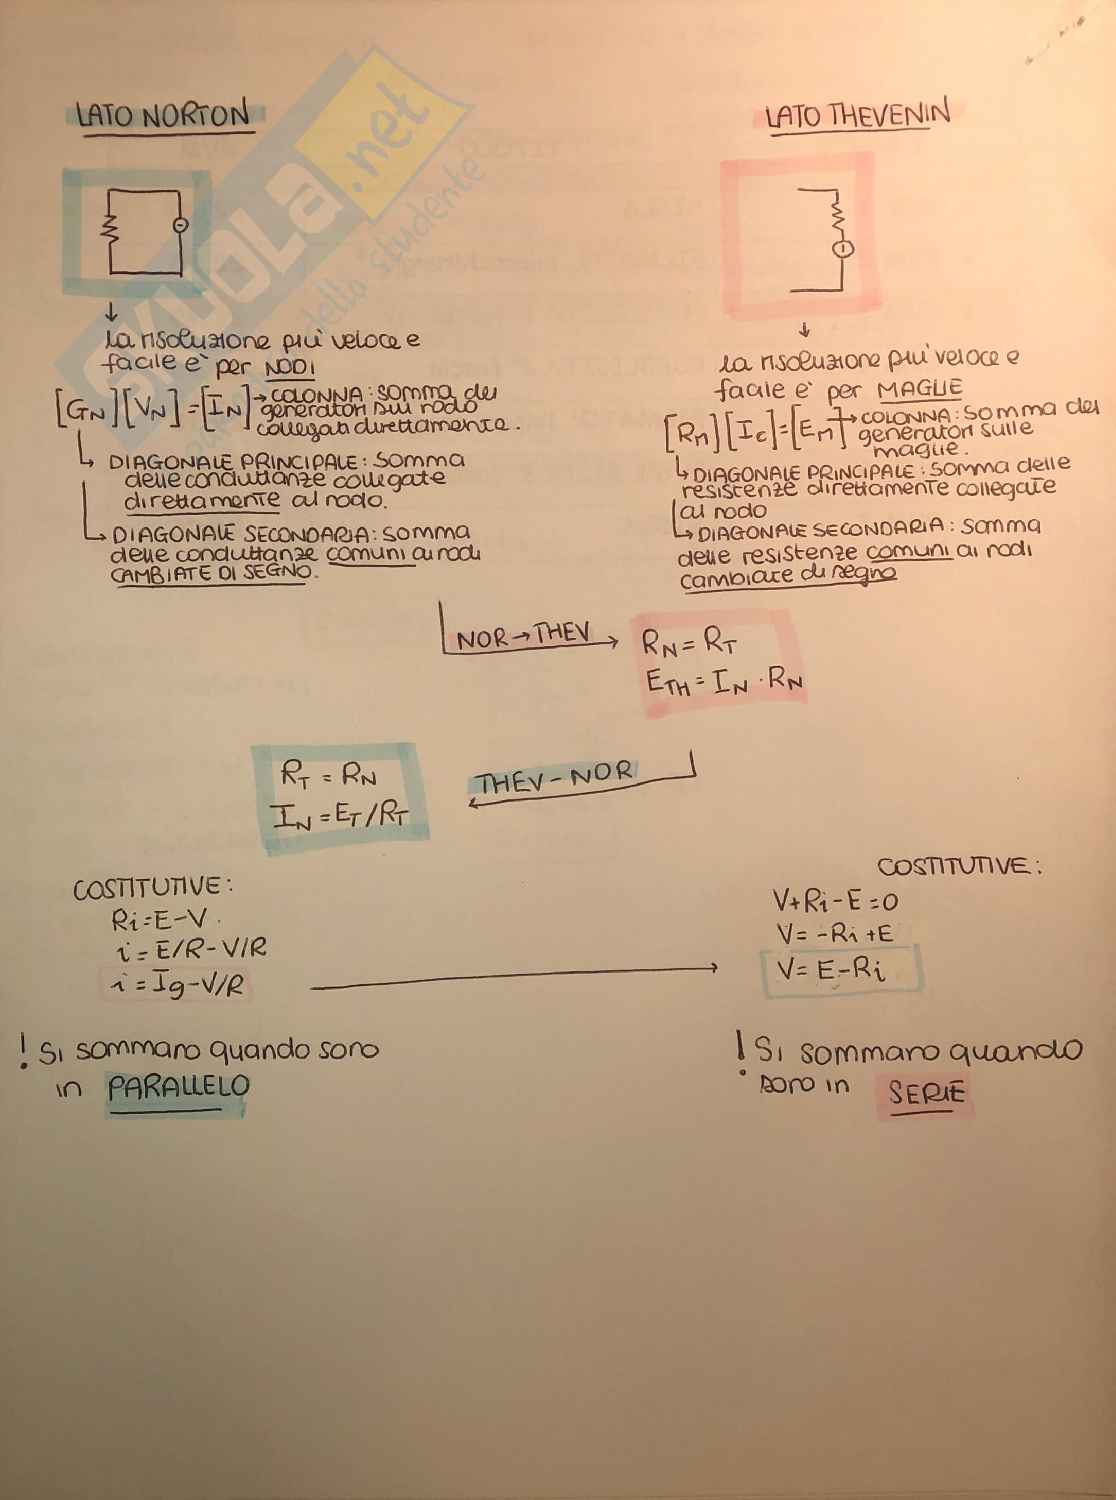 LATO NORTON
↓
la risoluzione più veloce e
facile e' per NODI
[GN][VN]=[IN]→COLONNA: somma dei
generatori sui nodo
collegati direttamente.
↳ DIAGONALE PRINCIPALE: somma
delle conduttanze collegate
direttamente al nodo.
↳ DIAGONALE SECONDARIA: somma
delle conduttanze comuni ai nodi
CAMBIATE DI SEGNO.
LATO THEVENIN
↓
la risoluzione più veloce e
facile e' per MAGLIE
[Rm][Ic]=[Em]→COLONNA: somma dei
generatori sulle
maglie.
↳ DIAGONALE PRINCIPALE: somma delle
resistenze direttamente collegate
al nodo
↳ DIAGONALE SECONDARIA: somma
delle resistenze comuni ai nodi
cambiate di segno
NOR→THEV
RN = RT
ETH = IN · RN
THEV-NOR
RT = RN
IN = ET/RT
COSTITUTIVE:
Ri=E-V.
i = E/R - V/R
i = Ig-V/R
! Si sommano quando sono
in PARALLELO
COSTITUTIVE:
V+Ri-E=0
V= -Ri+E
V= E-Ri
! Si sommano quando
sono in SERIE
SKUOLA.net
dello studente